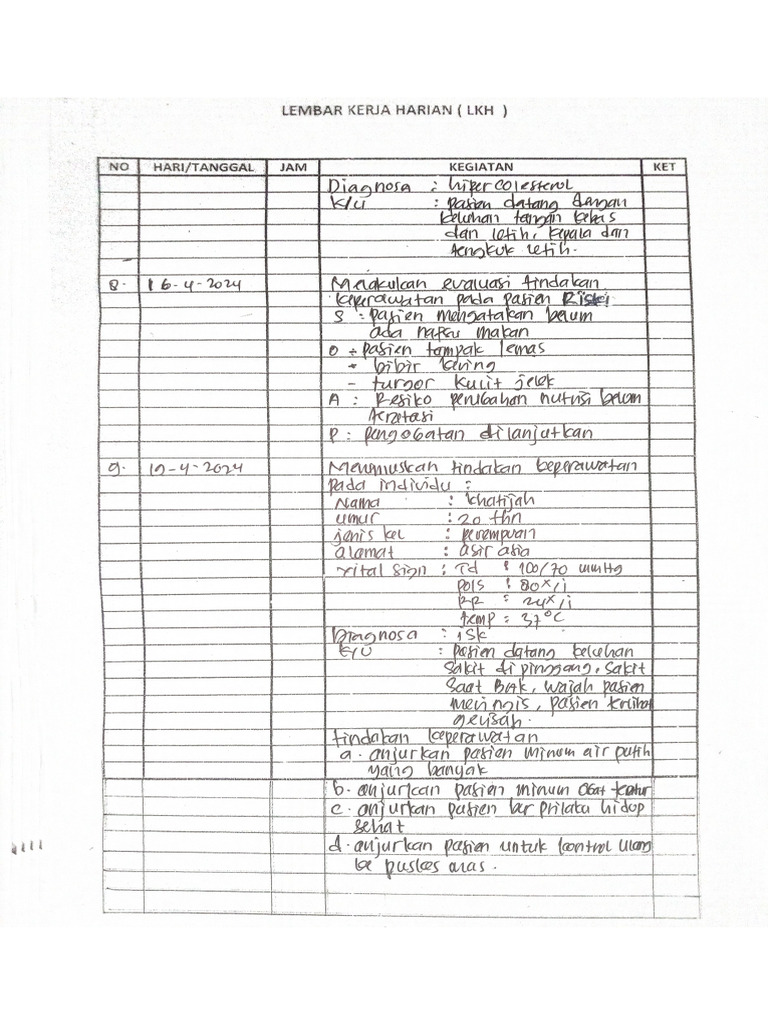 LEMBAR KERJA HARIAN ( LKH )
NO HARI/TANGGAL JAM KEGIATAN KET
Diagnosa : hipercolesterol
K/U : pasien datang dengan
keluhan tangan kebas
dan letih, kepala dan
tengkuk letih.
8. 16-4-2024 Melakukan evaluasi tindakan
keperawatan pada pasien Riski
S : pasien mengatakan belum
ada nafsu makan
O : - pasien tampak lemas
- bibir kering
- turgor kulit jelek
A : Resiko perubahan nutrisi belum
teratasi
P : pengobatan dilanjutkan
9. 19-4-2024 Merumuskan tindakan keperawatan
pada individu :
Nama : khatijah
umur : 20 thn
jenis kel : perempuan
alamat : asir asia
vital sign : Td : 100/70 mmHg
pols : 80x/i
RR : 24x/i
temp : 37°C
Diagnosa : ISK
K/U : pasien datang keluhan
sakit di pinggang, sakit
saat BAK, wajah pasien
meringis, pasien terlihat
gelisah.
tindakan keperawatan
a. anjurkan pasien minum air putih
yang banyak
b. anjurkan pasien minum obat teratur
c. anjurkan pasien berprilaku hidup
sehat
d. anjurkan pasien untuk control ulang
ke puskes